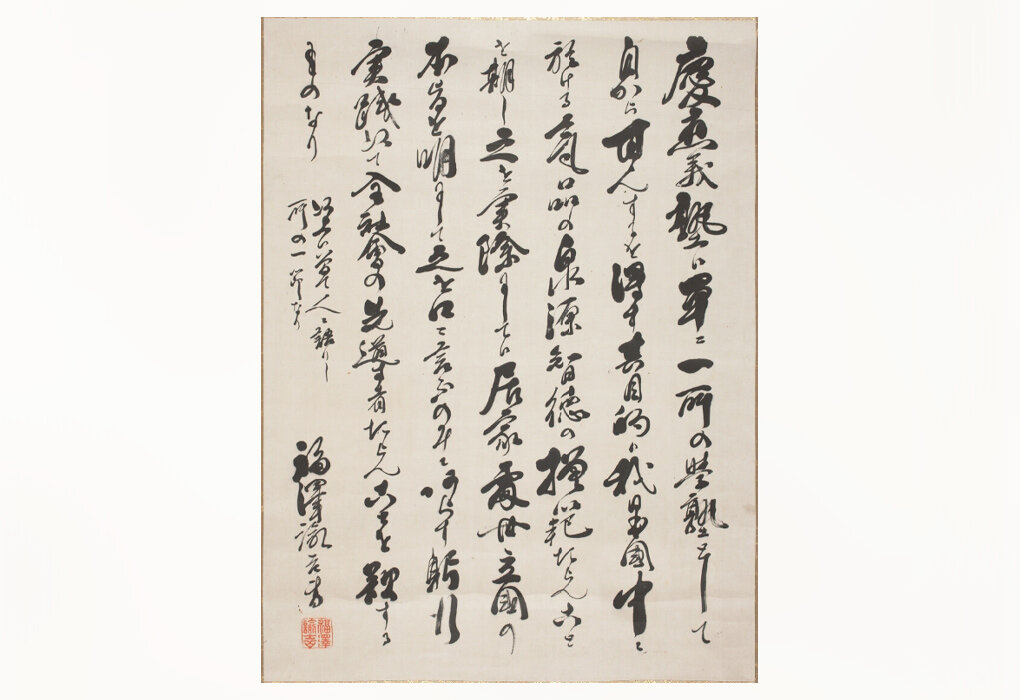 慶應義塾ハ單ニ一所の学塾として
自から甘んするを得す其目的ハ我日本國中ニ
於ける氣品の泉源智徳の模範たらんこと
を期し之を実際にしてハ居家處世立國の
本旨を明にして之を口ニ言ふのみニあらす躬行
実踐以て全社會の先導者たらんことを欲する
ものなり
以上ハ曽て人ニ語りし
所の一節なり
福澤諭吉書
福澤諭吉